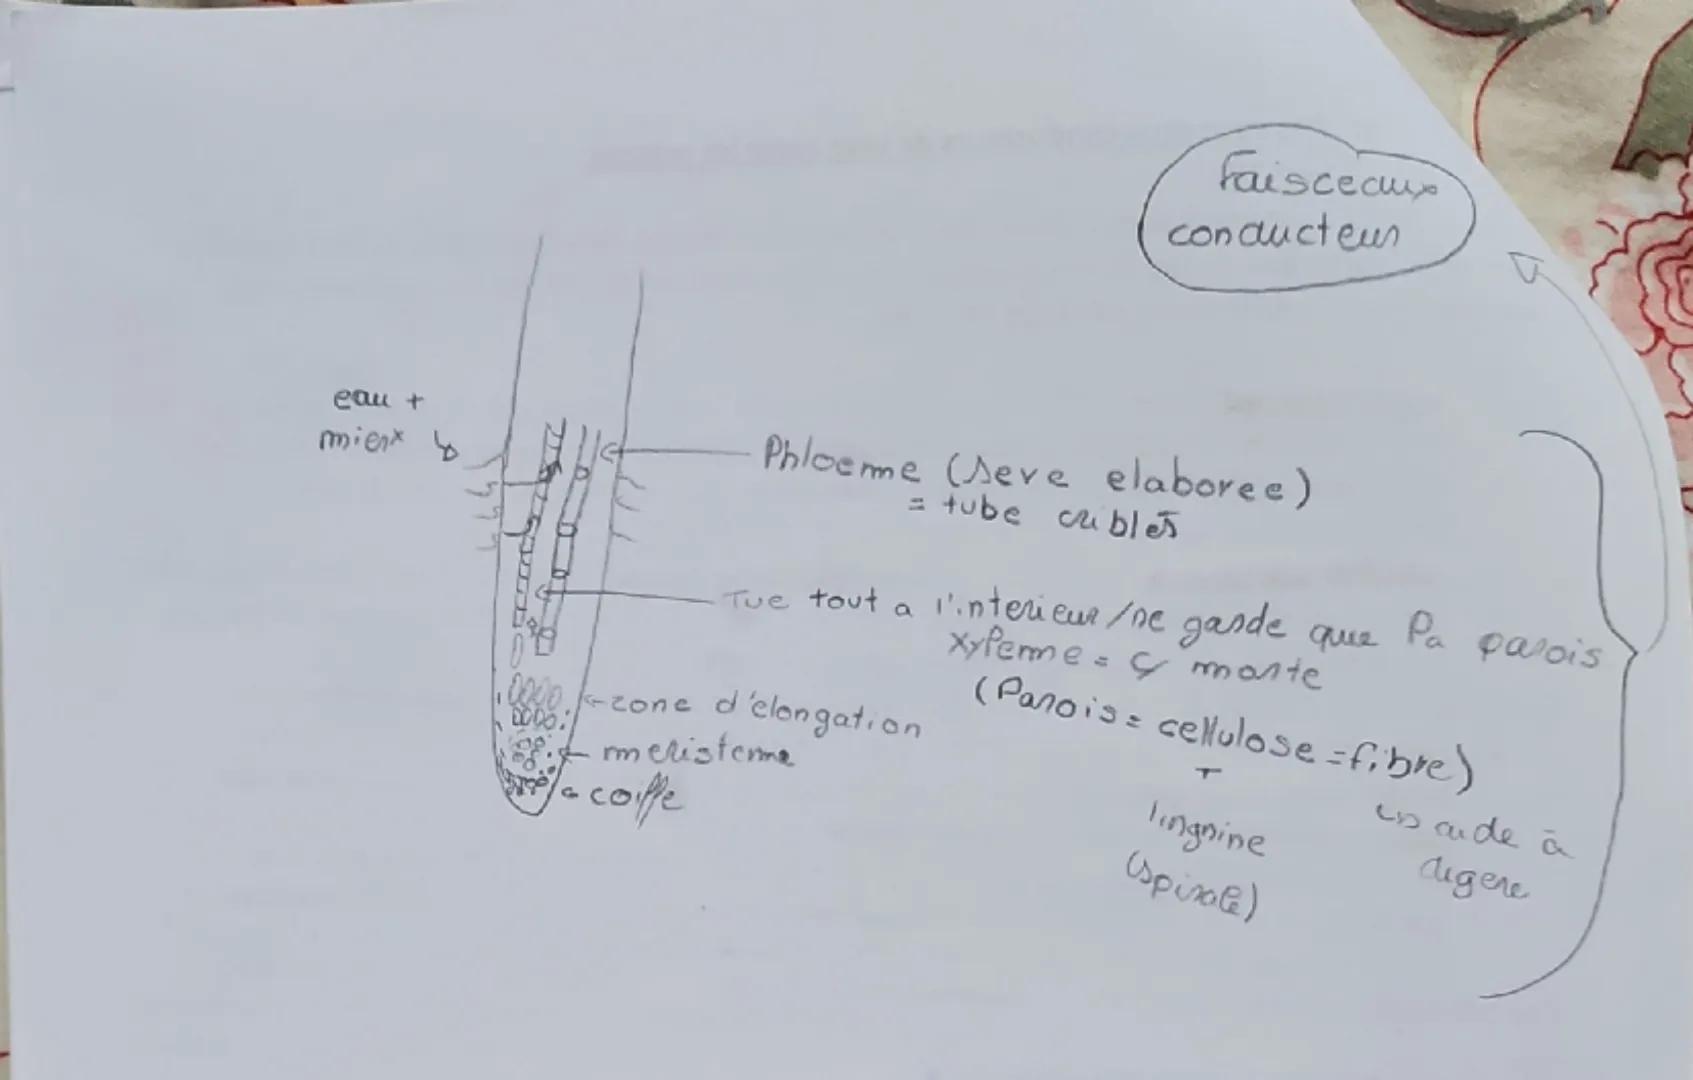 Faisceaux
conducteur
eau +
mierx
Phloeme (seve elaboree)
= tube criblés
Tue tout a l'interieur/ne garde que la parois
xyleme = ç monte
(Parois = cellulose = fibre)
+
lingnine
(spirale)
↳ aide à
digere
← zone d'élongation
← meristeme
← coiffe